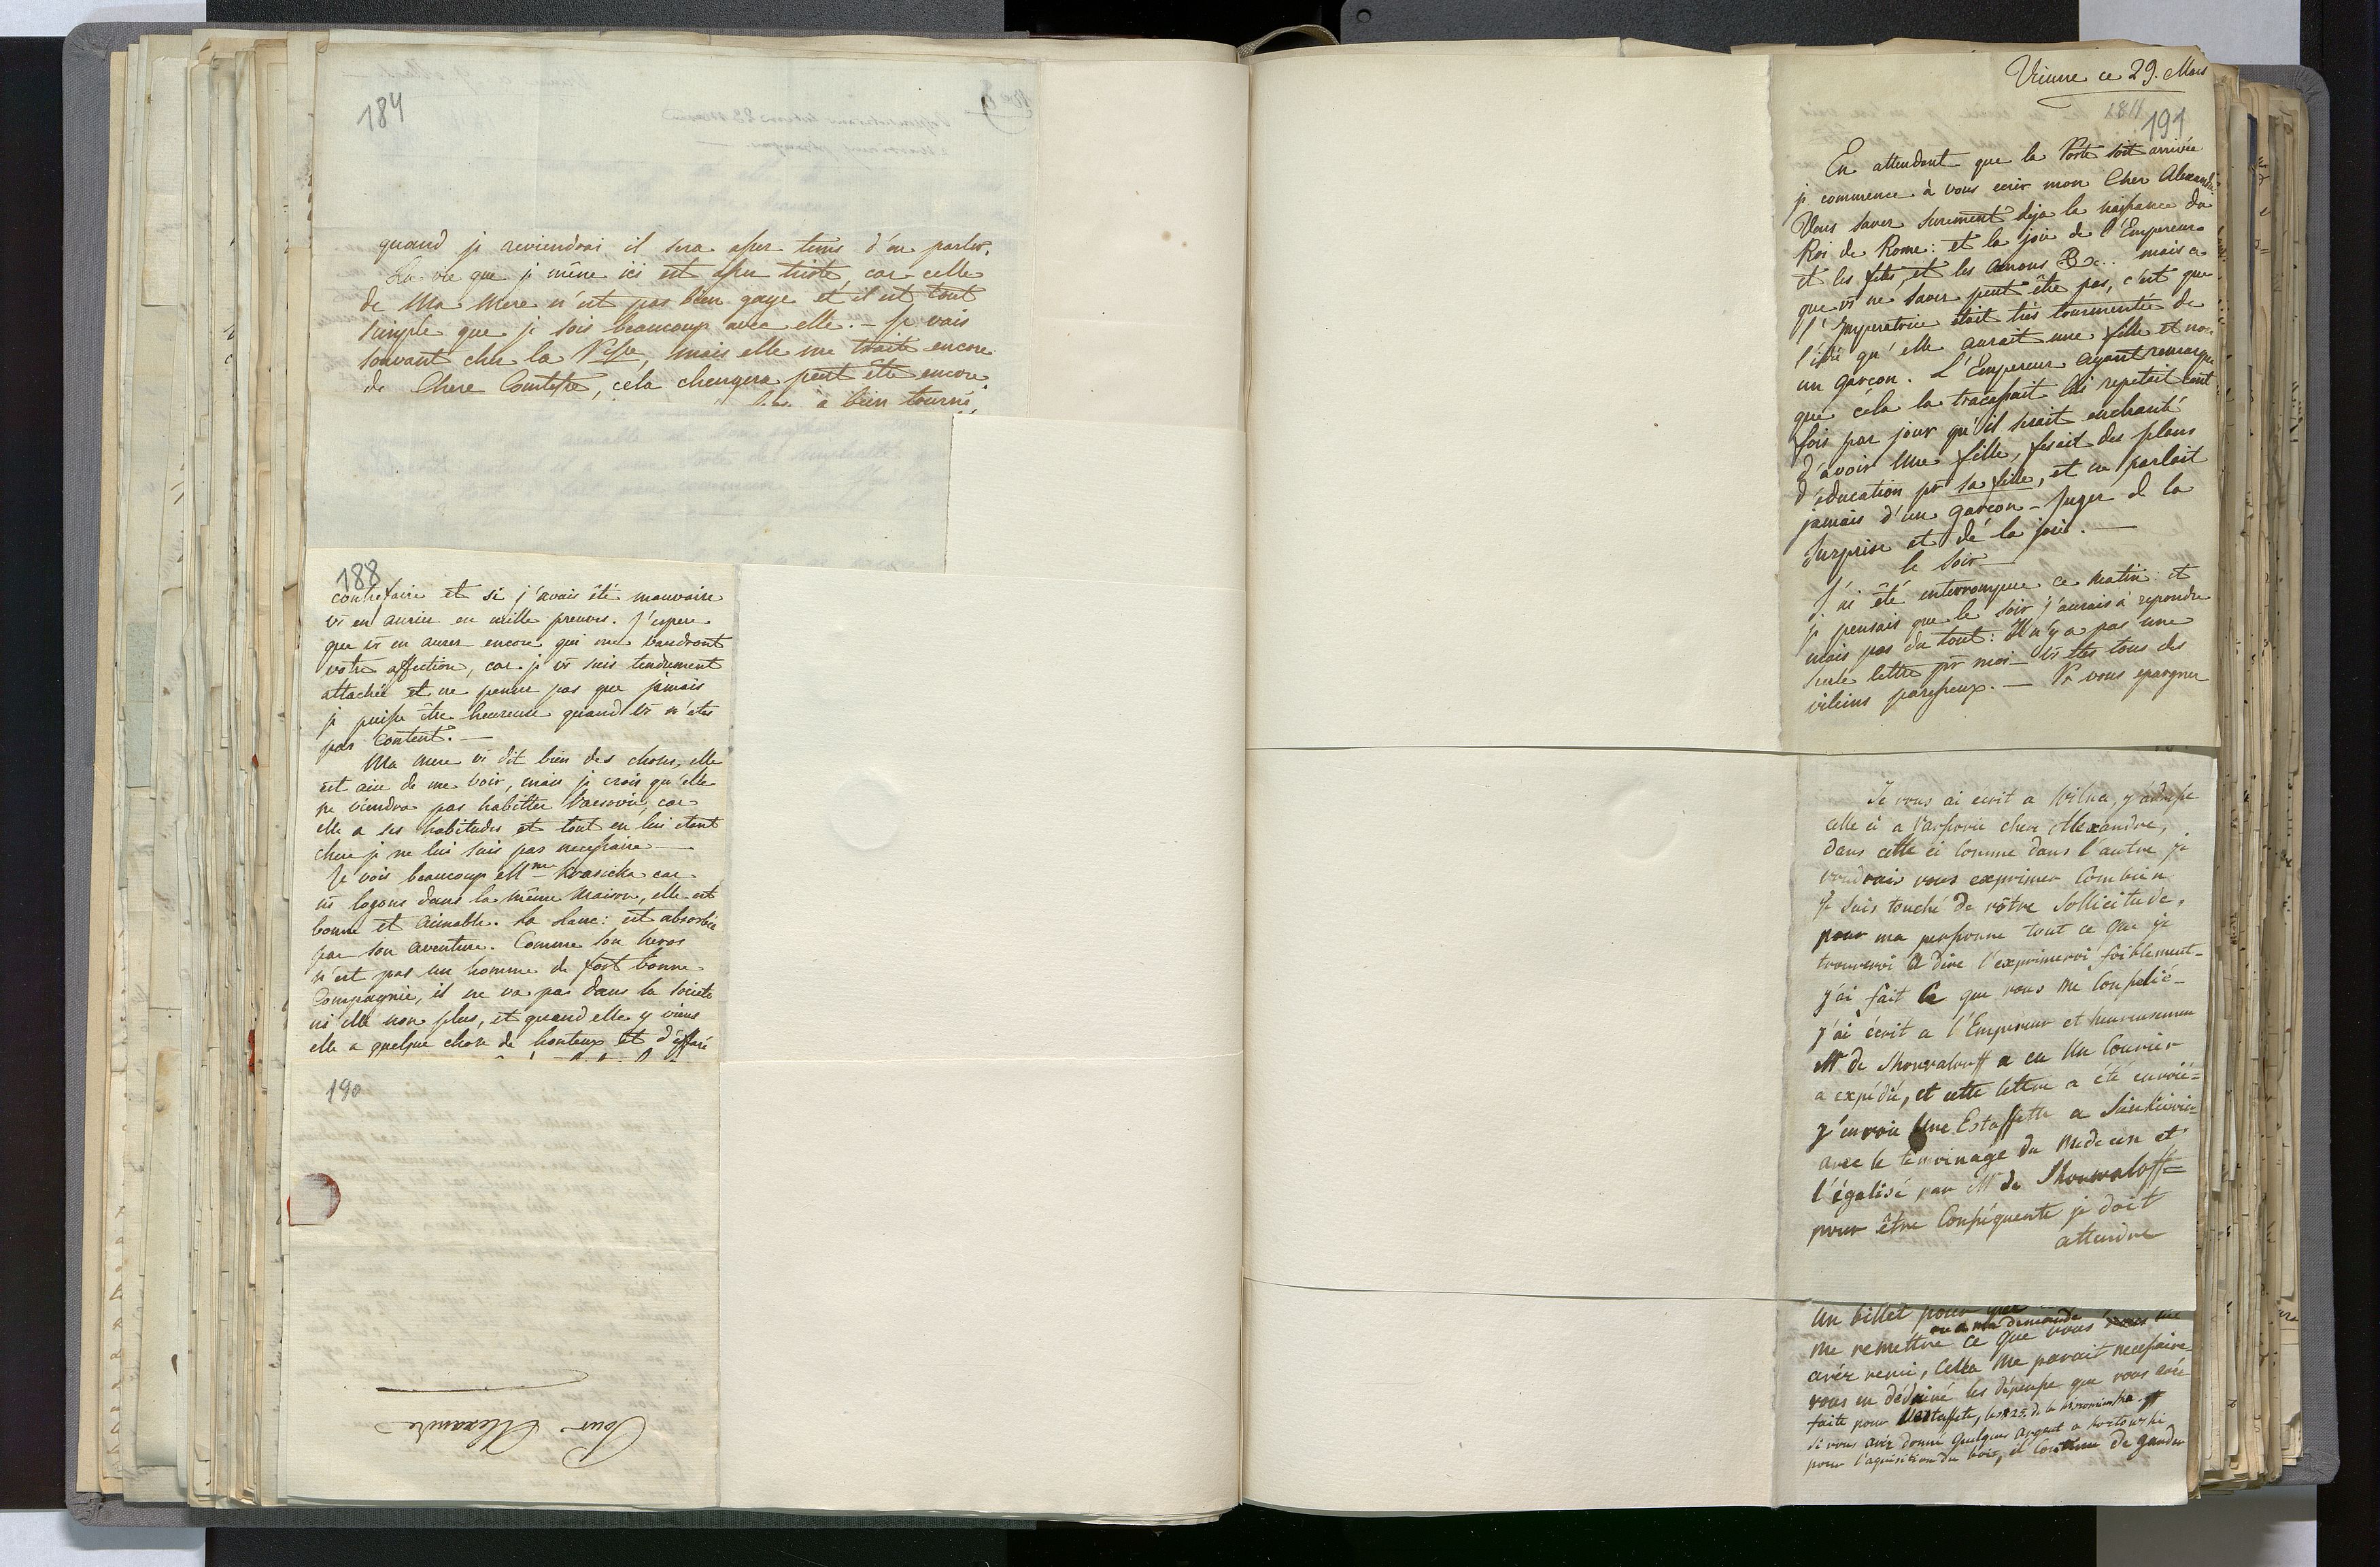 184
quand je reviendrai il sera assez tems d'en parler.
La vie que je mène ici est assez triste, car celle
de Ma Mere n'est pas bien gaye et il est tout
simple que je sois beaucoup avec elle. - Je vais
souvant chez la Psse, mais elle me traite encore
de Chere Comtesse, cela changera peut être encore.
à bien tourné
188
contrefaire et si j'avais été mauvaise
vs en auriez eu mille preuves. J'espere
que vs en aurez encore qui me vaudront
votre affection, car je vs suis tendrement
attachée et ne pensez pas que jamais
je puisse être heureuse quand vs n'etes
pas content. —
Ma mere vs dit bien des choses, elle
est aise de me voir, mais je crois qu'elle
ne viendra pas habitter Varsovie, car
elle a ses habitudes et tout en lui etant
chere je ne lui suis pas necessaire —
Je vois beaucoup Mme Krasicka car
ns logons dans la même Maison, elle est
bonne et aimable. La Lanc: est absorbée
par son aventure. Comme son heros
n'est pas un homme de fort bonne
Compagnie, il ne va pas dans la societé
ni elle non plus, et quand elle y viens
elle a quelque chose de honteux et d'effaré
190
Pour Alexandre
Vienne ce 29. Mars
1811
191
En attendant que la Poste soit arrivée
je commence à vous ecrir mon Cher Alexandre.
Vous savez surement deja la naissance du
Roi de Rome: et la joie de l'Empereur
et les fetes, et les canons &c.. mais ce
que vs ne savez peut être pas, c'est que
l'Imperatrice était très tourmentée de
l'idée qu'elle aurait une fille et non
un garcon. L'Empereur ayant remarqué
que céla la tracassait lui repetait cent
fois par jour qu'il serait enchanté
d'avoir une fille, fesait des plans
d'éducation pr sa fille, et ne parlait
jamais d'un garcon - Jugez de la
surprise et dé la joie. —
le Soir
J'ai été interrompue ce matin: et
je pensais que le soir j'aurais à repondre
mais pas du tout: Il n'y a pas une
seule lettre pr moi - Vs etes tous des
vileins paresseux. — Pr vous epargner
Je vous ai ecrit a Wilna, j'adresse
celle ci a Varsovie cher Alexandre,
dans cette ci comme dans l'autre je
voudrais vous exprimer Combien
je suis touché de vôtre sollicitude,
pour ma personne tout ce que je
trouveroi a dire l'exprimeroi foiblement-
j'ai fait ce que vous me Conseliè-
j'ai écrit a l'Empereur et heureusemen
Mr de Shouvaloff a eu un Courier
a expédié, et cette lettre a été envoié=
j'envoie une Estaffette a
avec le temoinage du Medecin et
l'égalisé par Mr de Shouvaloff=
pour être Conséquente je doit
attendre
Un billet pour
ou a ma demande
me remettre ce que vous
avéz remi, Cella me parait necessaire
vous en déduiré les dépense que vous avéz
faite pour l'Estaffete, les #25. de la
si vous avéz donné quelques Argent a
pour l'aquisition du bois, il de garder